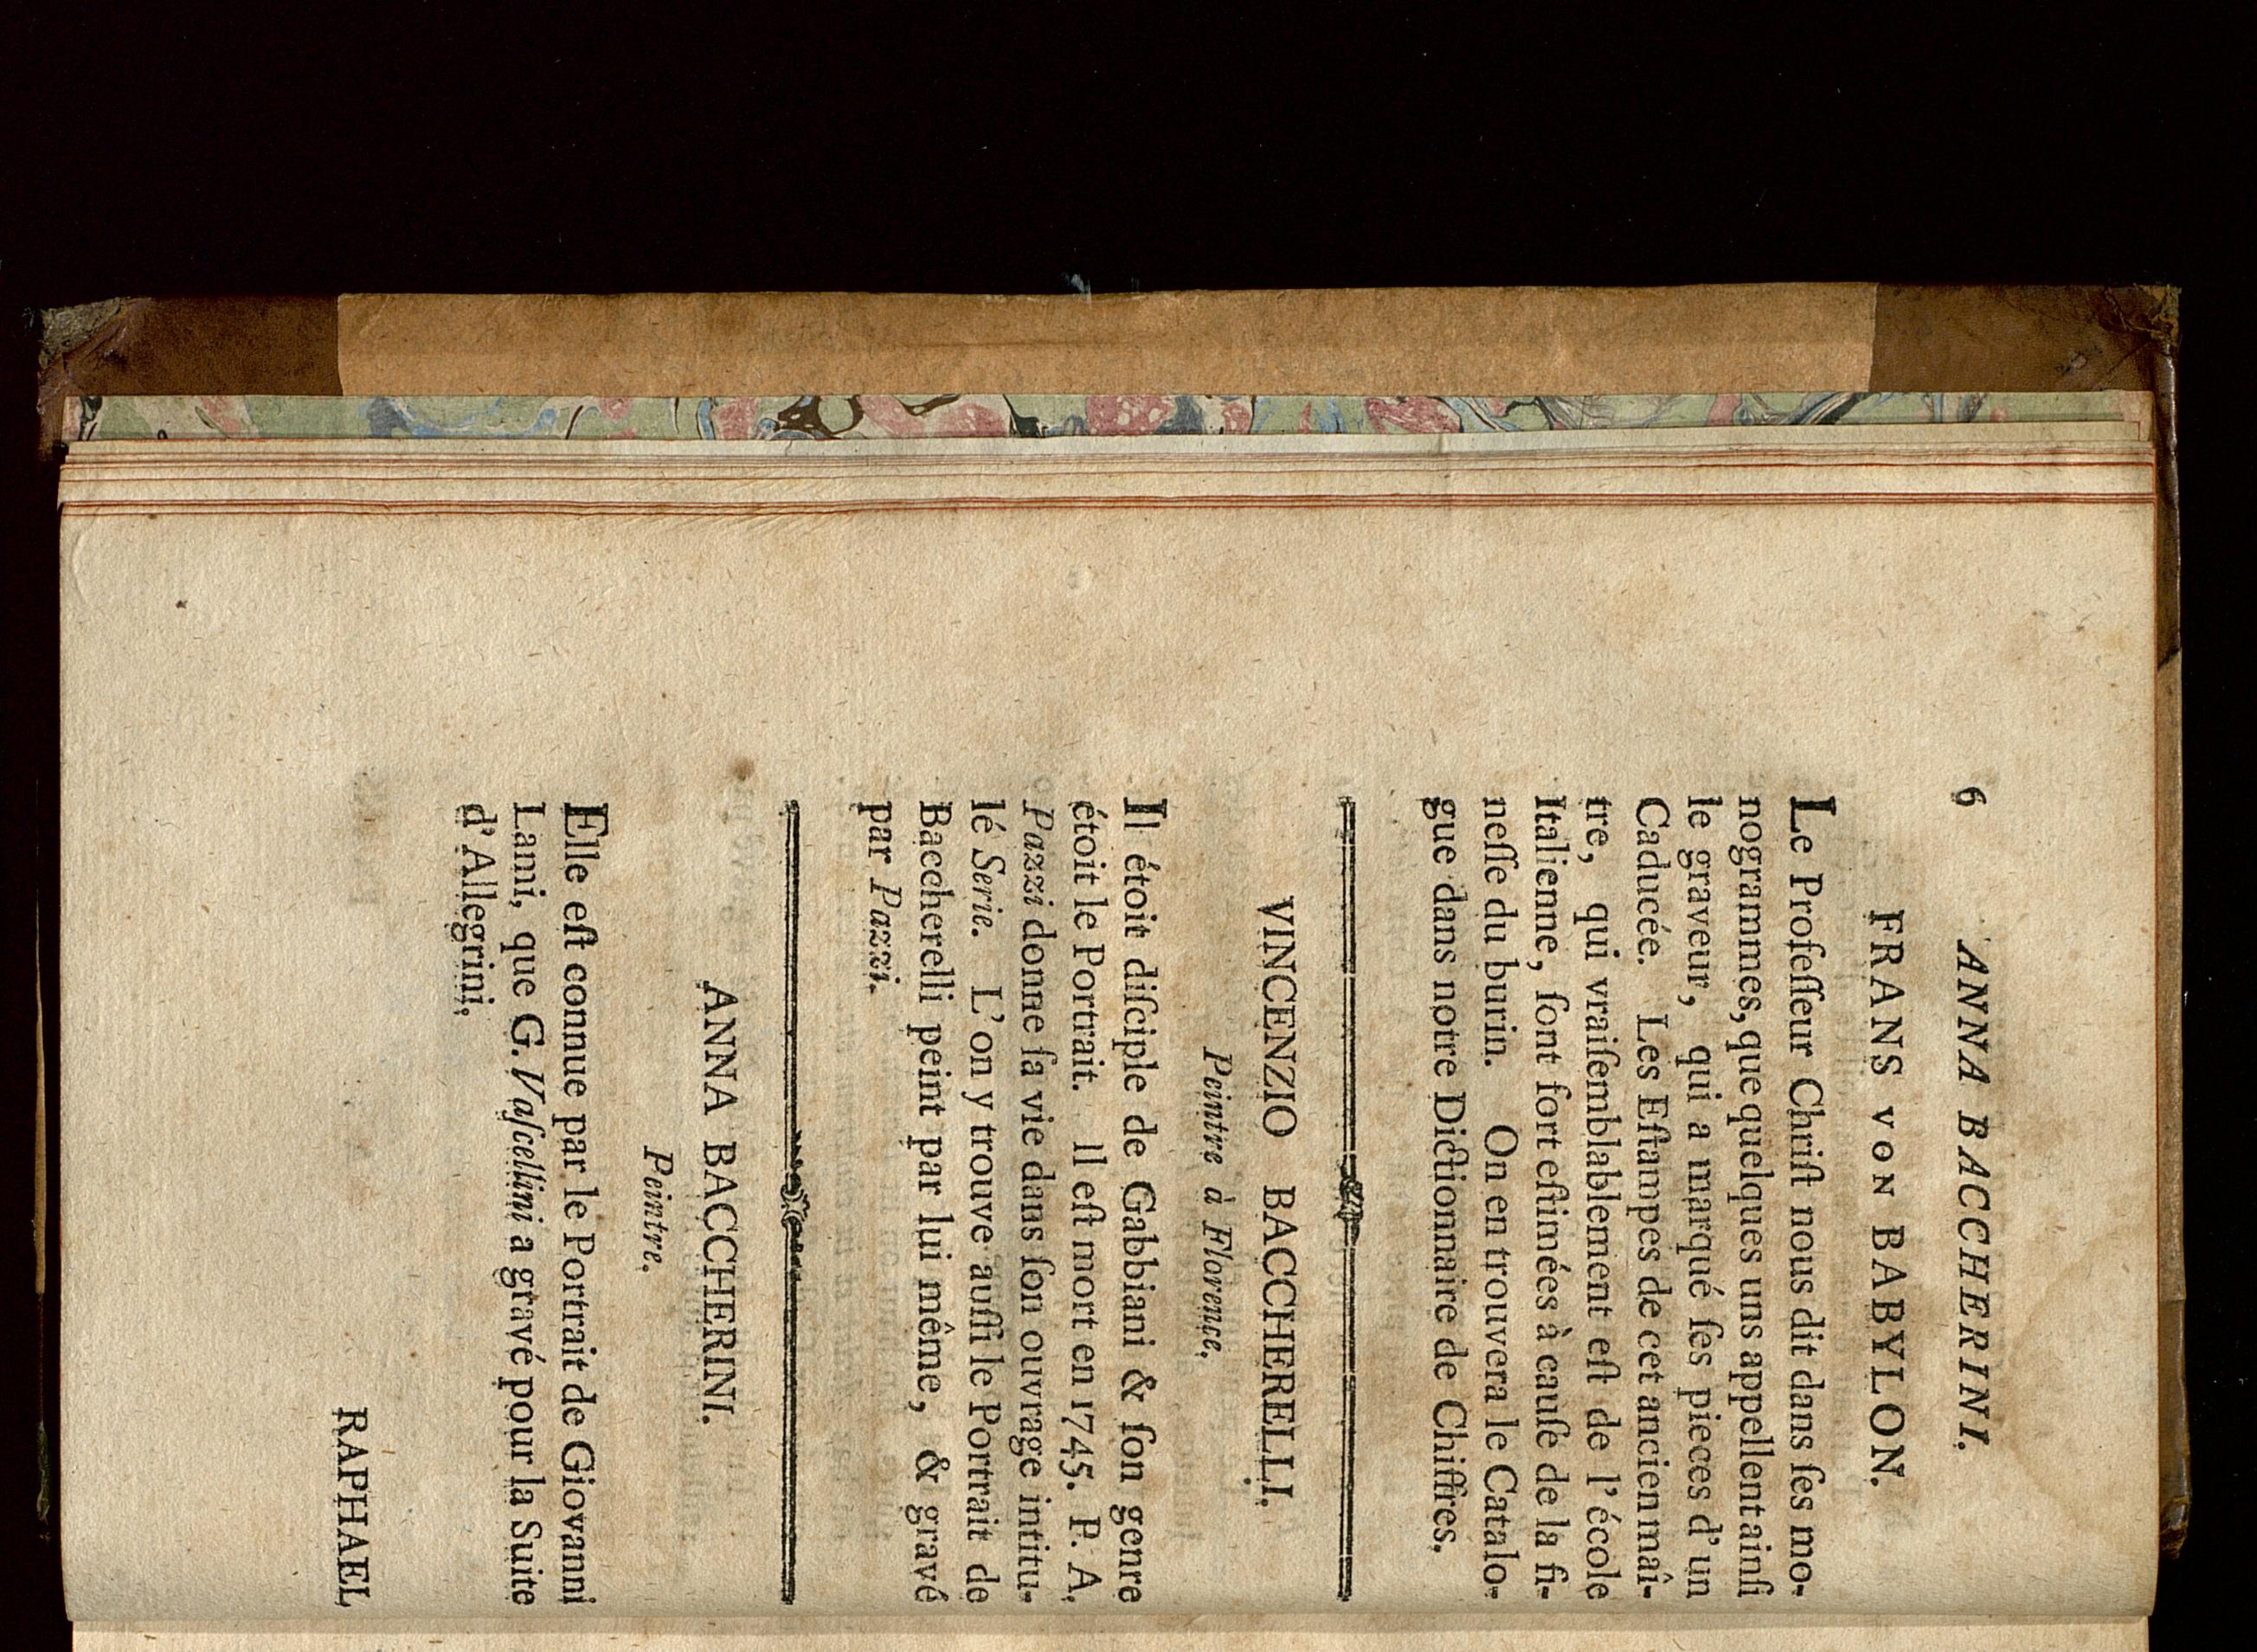 6 ANNA BACCHERINI.
FRANS VON BABYLON.
Le Profeſſeur Chriſt nous dit dans ſes mo-
nogrammes, que quelques uns appellent ainſi
le graveur, qui a marqué ſes pieces d'un
Caducée. Les Eſtampes de cet ancien maî-
tre, qui vraiſemblablement eſt de l'école
Italienne, ſont fort eſtimées à cauſe de la fi-
neſſe du burin. On en trouvera le Catalo-
gue dans notre Dictionnaire de Chiffres.
VINCENZIO BACCHERELLI.
Peintre à Florence.
Il étoit diſciple de Gabbiani & ſon genre
étoit le Portrait. Il eſt mort en 1745. P. A.
Pazzi donne ſa vie dans ſon ouvrage intitu-
lé Serie. L'on y trouve auſſi le Portrait de
Baccherelli peint par lui même, & gravé
par Pazzi.
ANNA BACCHERINI.
Peintre.
Elle eſt connue par le Portrait de Giovanni
Lami, que G. Vaſcellini a gravé pour la Suite
d'Allegrini.
RAPHAEL